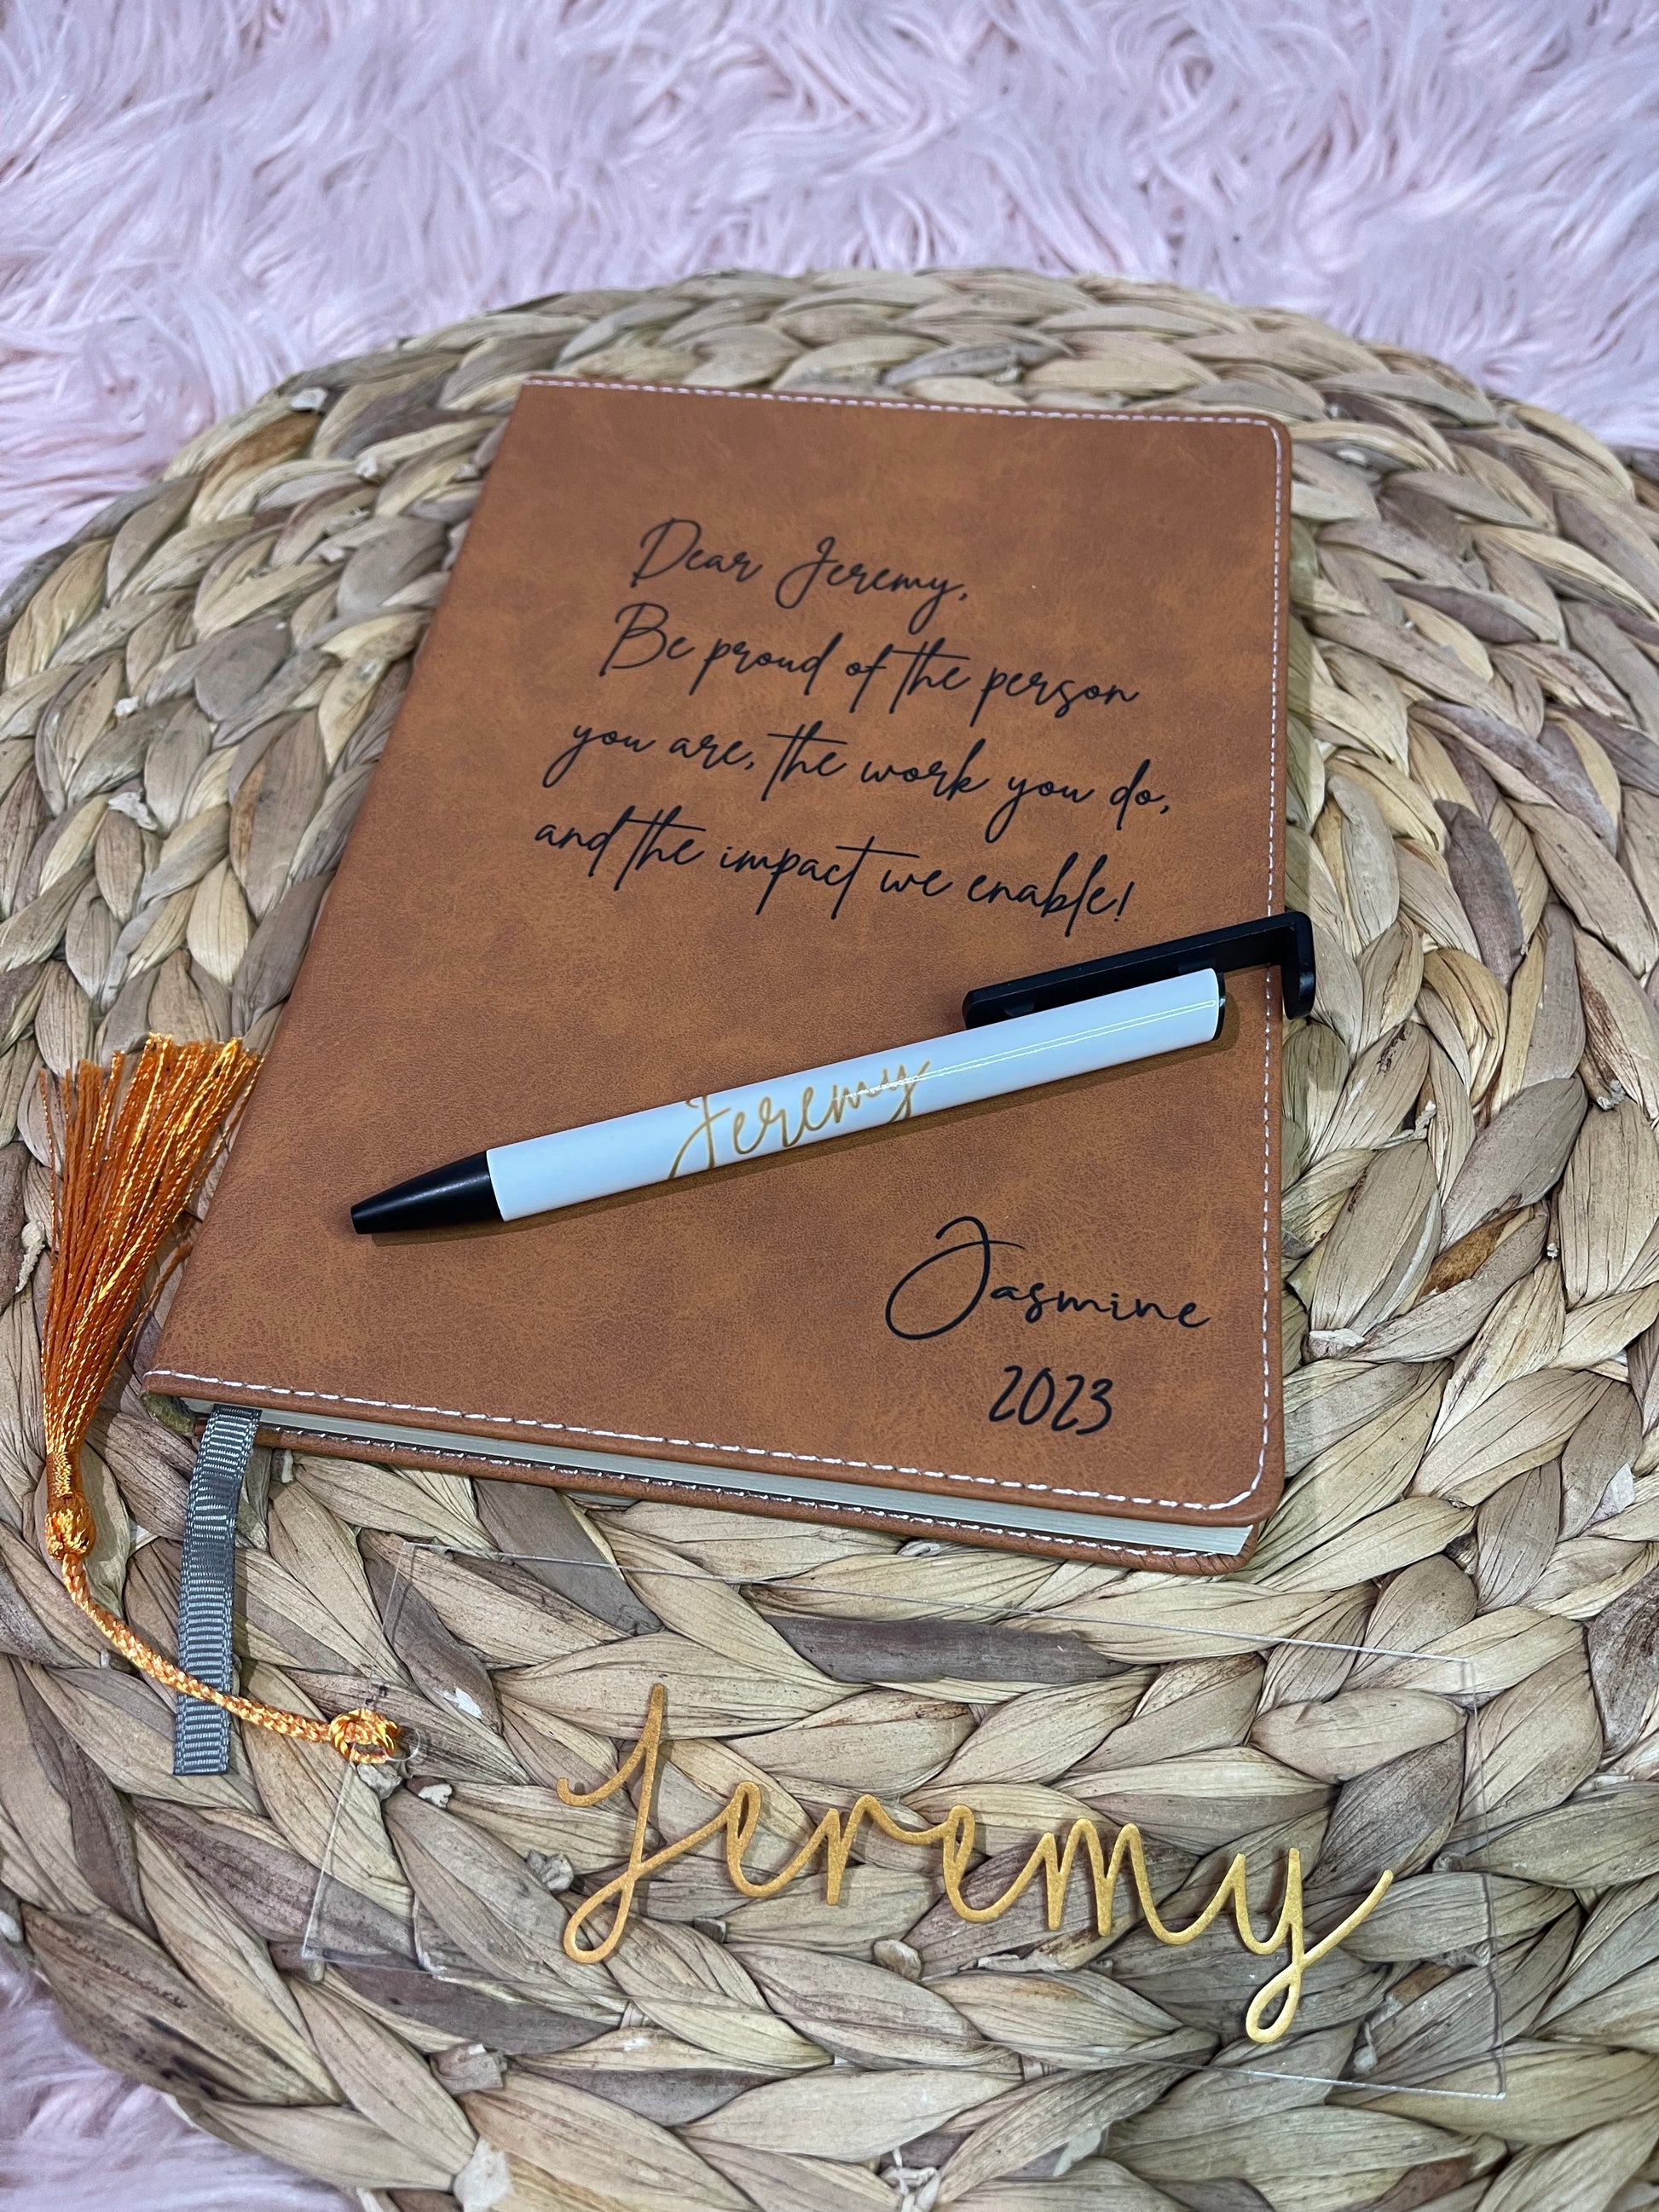 Dear Jeremy,
Be proud of the person
you are, the work you do,
and the impact we enable!
Jeremy
Jasmine
2023
Jeremy